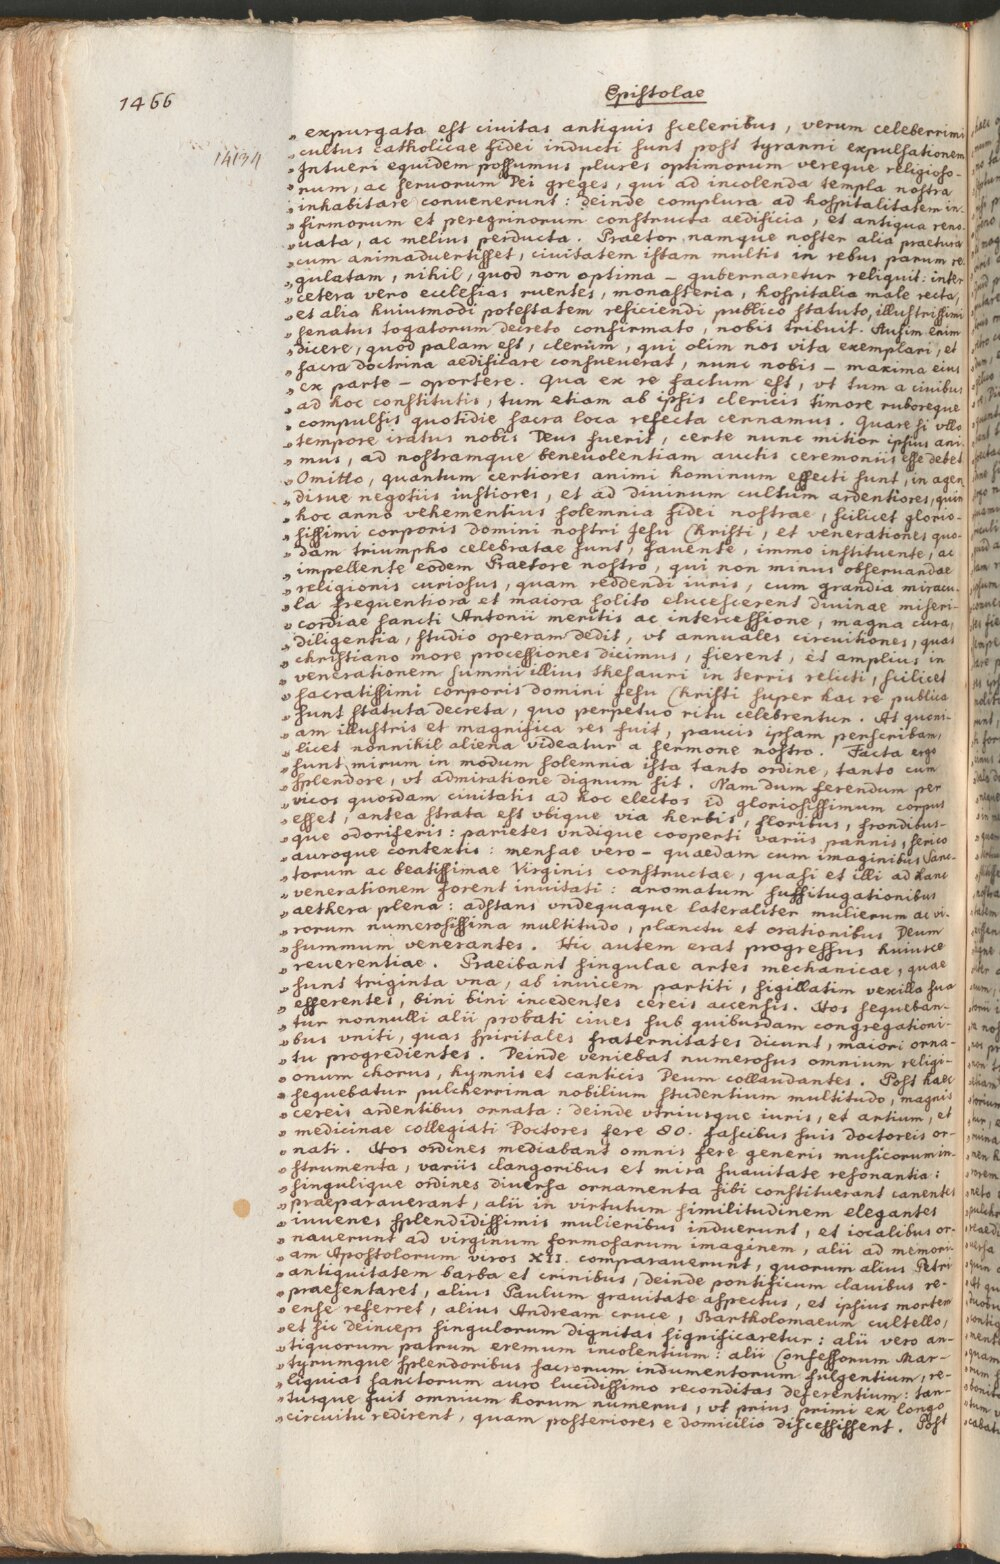 1466
Epistolae
14134
„ expurgata est civitas antiquis sceleribus, verum celeberrimi
„ cultus catholicae fidei inducti sunt post tyranni expulsationem
„ Intueri equidem possumus plures optimorum vereque religioso-
„ rum, ac servorum Dei greges, qui ad incolenda templa nostra
„ inhabitare convenerunt: deinde complura ad hospitalitatem in-
„ firmorum et peregrinorum constructa aedificia, et antiqua reno-
„ vata, ac melius perducta. Praetor namque noster alia praetura
„ cum animadvertisset, civitatem istam multis in rebus parum re
„ gulatam, nihil, quod non optima – gubernaretur reliquit: inter
„ cetera vero ecclesias ruentes, monasteria, hospitalia male recta,
„ et alia huiusmodi potestatem reficiendi publico statuto, illustrissimi
„ senatus togatorum decreto confirmato, nobis tribuit. Ausim enim
„ dicere, quod palam est, clerum, qui olim nos vita exemplari, et
„ sacra doctrina aedificare consueverat, nunc nobis – maxima eius
„ ex parte – oportere. Qua ex re factum est, vt tum a civibus
„ ad hoc constitutis, tum etiam ab ipsis clericis timore ruboreque
„ compulsis quotidie sacra loca refecta cernamus. Quare si vllo
„ tempore iratus nobis Deus fuerit, certe nunc mitior ipsius ani
„ mus, ad nostramque benevolentiam auctis ceremoniis esse debet
„ Omitto, quantum certiores animi hominum effecti sunt, in agen
„ disve negotiis iustiores, et ad divinum cultum ardentiores, quin
„ hoc anno vehementius solemnia fidei nostrae, scilicet glorio-
„ sissimi corporis Domini nostri Jesu Christi, et venerationes quo-
„ dam triumpho celebratae sunt, favente, immo instituente, ac
„ impellente eodem Praetore nostro, qui non minus observandae
„ religionis curiosus, quam reddendi iuris, cum grandia miracu-
„ la frequentiora et maiora solito elucescerent divinae miseri-
„ cordiae sancti Antonii meritis ac intercessione, magna cura,
„ diligentia, studio operam dedit, vt annuales circuitiones, quas
„ christiano more processiones dicimus, fierent, et amplius in
„ venerationem summi illius thesauri in terris relicti, scilicet
„ sacratissimi corporis Domini Jesu Christi super hac re publica
„ sunt statuta decreta, quo perpetuo ritu celebrentur. At quoni-
„ am illustris et magnifica res fuit, paucis ipsam perscribam,
„ licet nonnihil aliena videatur a sermone nostro. Facta ergo
„ sunt mirum in modum solemnia ista tanto ordine, tanto cum
„ splendore, vt admiratione dignum sit. Nam dum ferendum per
„ vicos quosdam civitatis ad hoc electos id gloriosissimum corpus
„ esset, antea strata est vbique via herbis, floribus, frondibus-
„ que odoriferis: parietes vndique cooperti variis pannis, serico
„ auroque contextis: mensae vero – quaedam cum imaginibus Sanc-
„ torum ac beatissimae Virginis constructae, quasi et illi ad hanc
„ venerationem forent invitati: aromatum suffitugationibus
„ aethera plena: adstans vndequaque lateraliter mulierum ac vi-
„ rorum numerosissima multitudo, planctu et orationibus Deum
„ summum venerantes. Hic autem erat progressus huiusce
„ reverentiae. Praeibant singulae artes mechanicae, quae
„ sunt triginta vna, ab invicem partiti, sigillatim vexilla sua
„ efferentes, bini bini incedentes cereis accensis. Hos sequeban-
„ tur nonnulli alii probati cives sub quibusdam congregationi-
„ bus vniti, quas spiritales fraternitates dicunt, maiori orna-
„ tu progredientes. Deinde veniebat numerosus omnium religi-
„ onum chorus, hymnis et canticis Deum collaudantes. Post haec
„ sequebatur pulcherrima nobilium studentium multitudo, magnis
„ cereis ardentibus ornata: deinde vtriusque iuris, et artium, et
„ medicinae collegiati Doctores fere 80. fascibus suis doctoreis or-
„ nati. Hos ordines mediabant omnis fere generis musicorum in-
„ strumenta, variis clangoribus et mira suavitate resonantia:
„ singulique ordines diversa ornamenta sibi constituerant canentes
„ praeparaverant, alii in virtutum similitudinem elegantes
„ iuvenes splendidissimis mulieribus induerunt, et iocalibus or-
„ naverunt ad virginum formosarum imaginem, alii ad memori-
„ am Apostolorum viros XII. comparaverunt, quorum alius Petri
„ antiquitatem barba et crinibus, deinde pontificum clavibus re-
„ praesentaret, alius Paulum gravitate aspectus, et ipsius mortem
„ ense referret, alius Andream cruce, Bartholomaeum cultello,
„ et sic deinceps singulorum dignitas significaretur: alii vero an-
„ tiquorum patrum eremum incolentium: alii Confessorum Mar-
„ tyrumque splendoribus sacrorum indumentorum fulgentium, re-
„ liquias sanctorum auro lucidissimo reconditas deferentium: tan-
„ tusque fuit omnium horum numerus, vt prius primi ex longo
„ circuitu redirent, quam posteriores e domicilio discessissent. Post